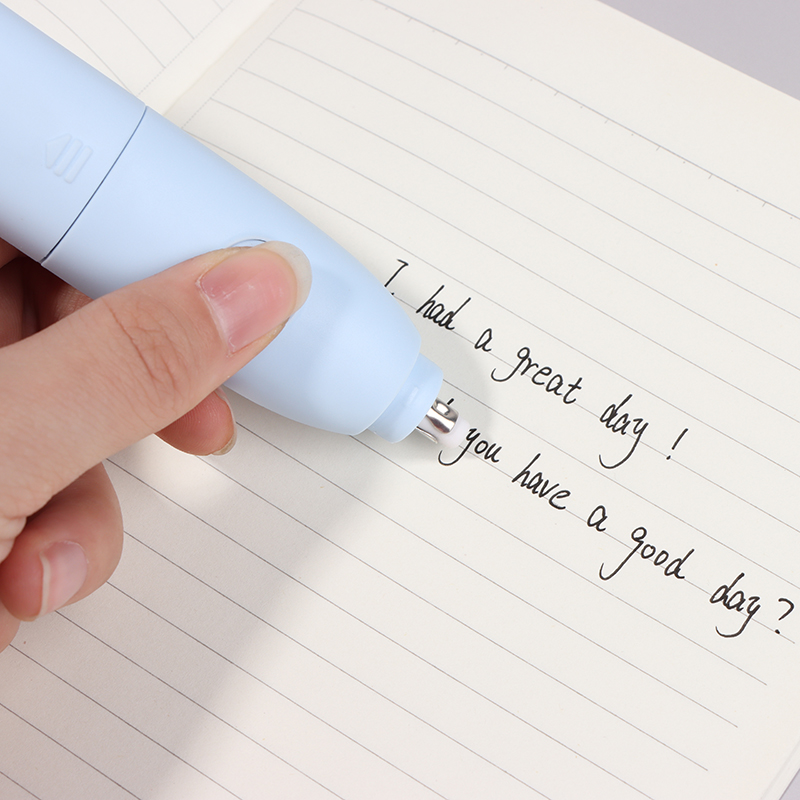 I had a great day !
you have a good day ?